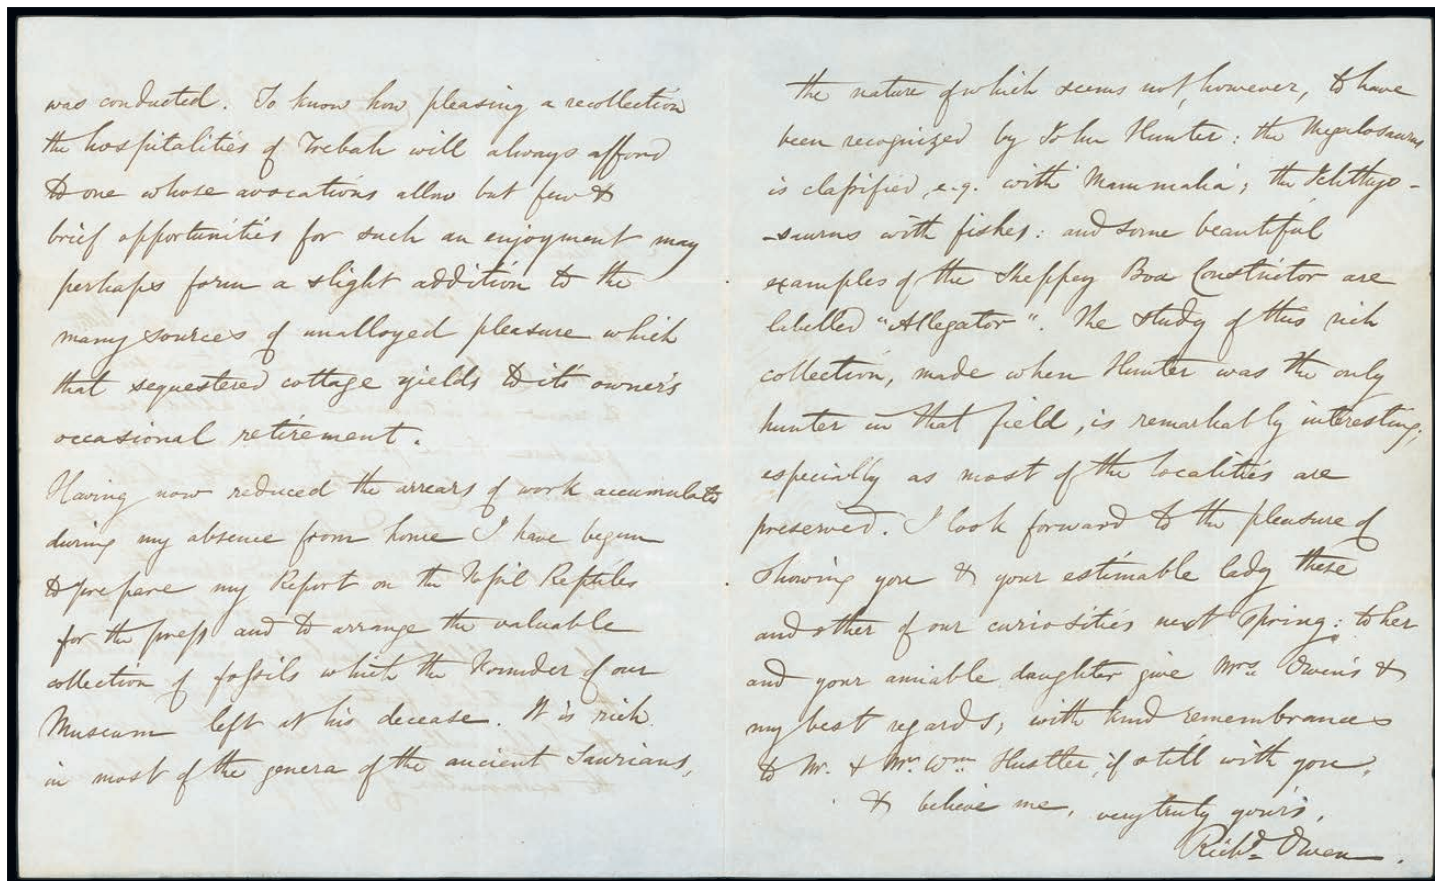 was conducted. To know how pleasing a recollection
the hospitalities of Trebah will always afford
to one whose avocations allow but few &
brief opportunities for such an enjoyment may
perhaps form a slight addition to the
many sources of unalloyed pleasure which
that sequestered cottage yields to its owner's
occasional retirement.
Having now reduced the arrears of work accumulated
during my absence from home I have begun
to prepare my Report on the Fossil Reptiles
for the press and to arrange the valuable
collection of fossils which the Founder of our
Museum left at his decease. It is rich
in most of the genera of the ancient Saurians,
the nature of which seems not, however, to have
been recognized by John Hunter: the Megalosaurus
is classified, e.g. with Mammalia; the Ichthyo-
-saurus with fishes: and some beautiful
examples of the Sheppey Boa Constrictor are
labelled "Allegator". The study of this rich
collection, made when Hunter was the only
hunter in that field, is remarkably interesting;
especially as most of the localities are
preserved. I look forward to the pleasure of
showing you & your estimable lady these
and other of our curiosities next Spring: to her
and your amiable daughter give Mrs. Owen's &
my best regards, with kind remembrances
to Mr. & Mrs. Wm. Hustler, if still with you,
& believe me, very truly yours,
Richd. Owen.